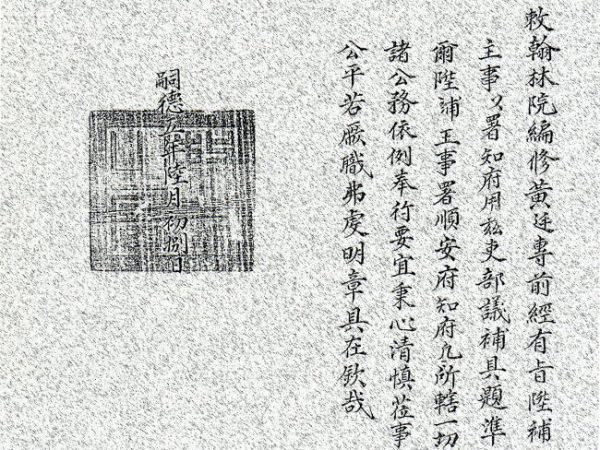 敕翰林院編修黃廷專前經有旨陞補
主事㕥署知府用玆吏部議補具題準
爾陞補主事署順安府知府凡所轄一切
諸公務依例奉行要宜秉心清慎莅事
公平若厥職弗虔明章具在欽哉
嗣德年陸月初捌日